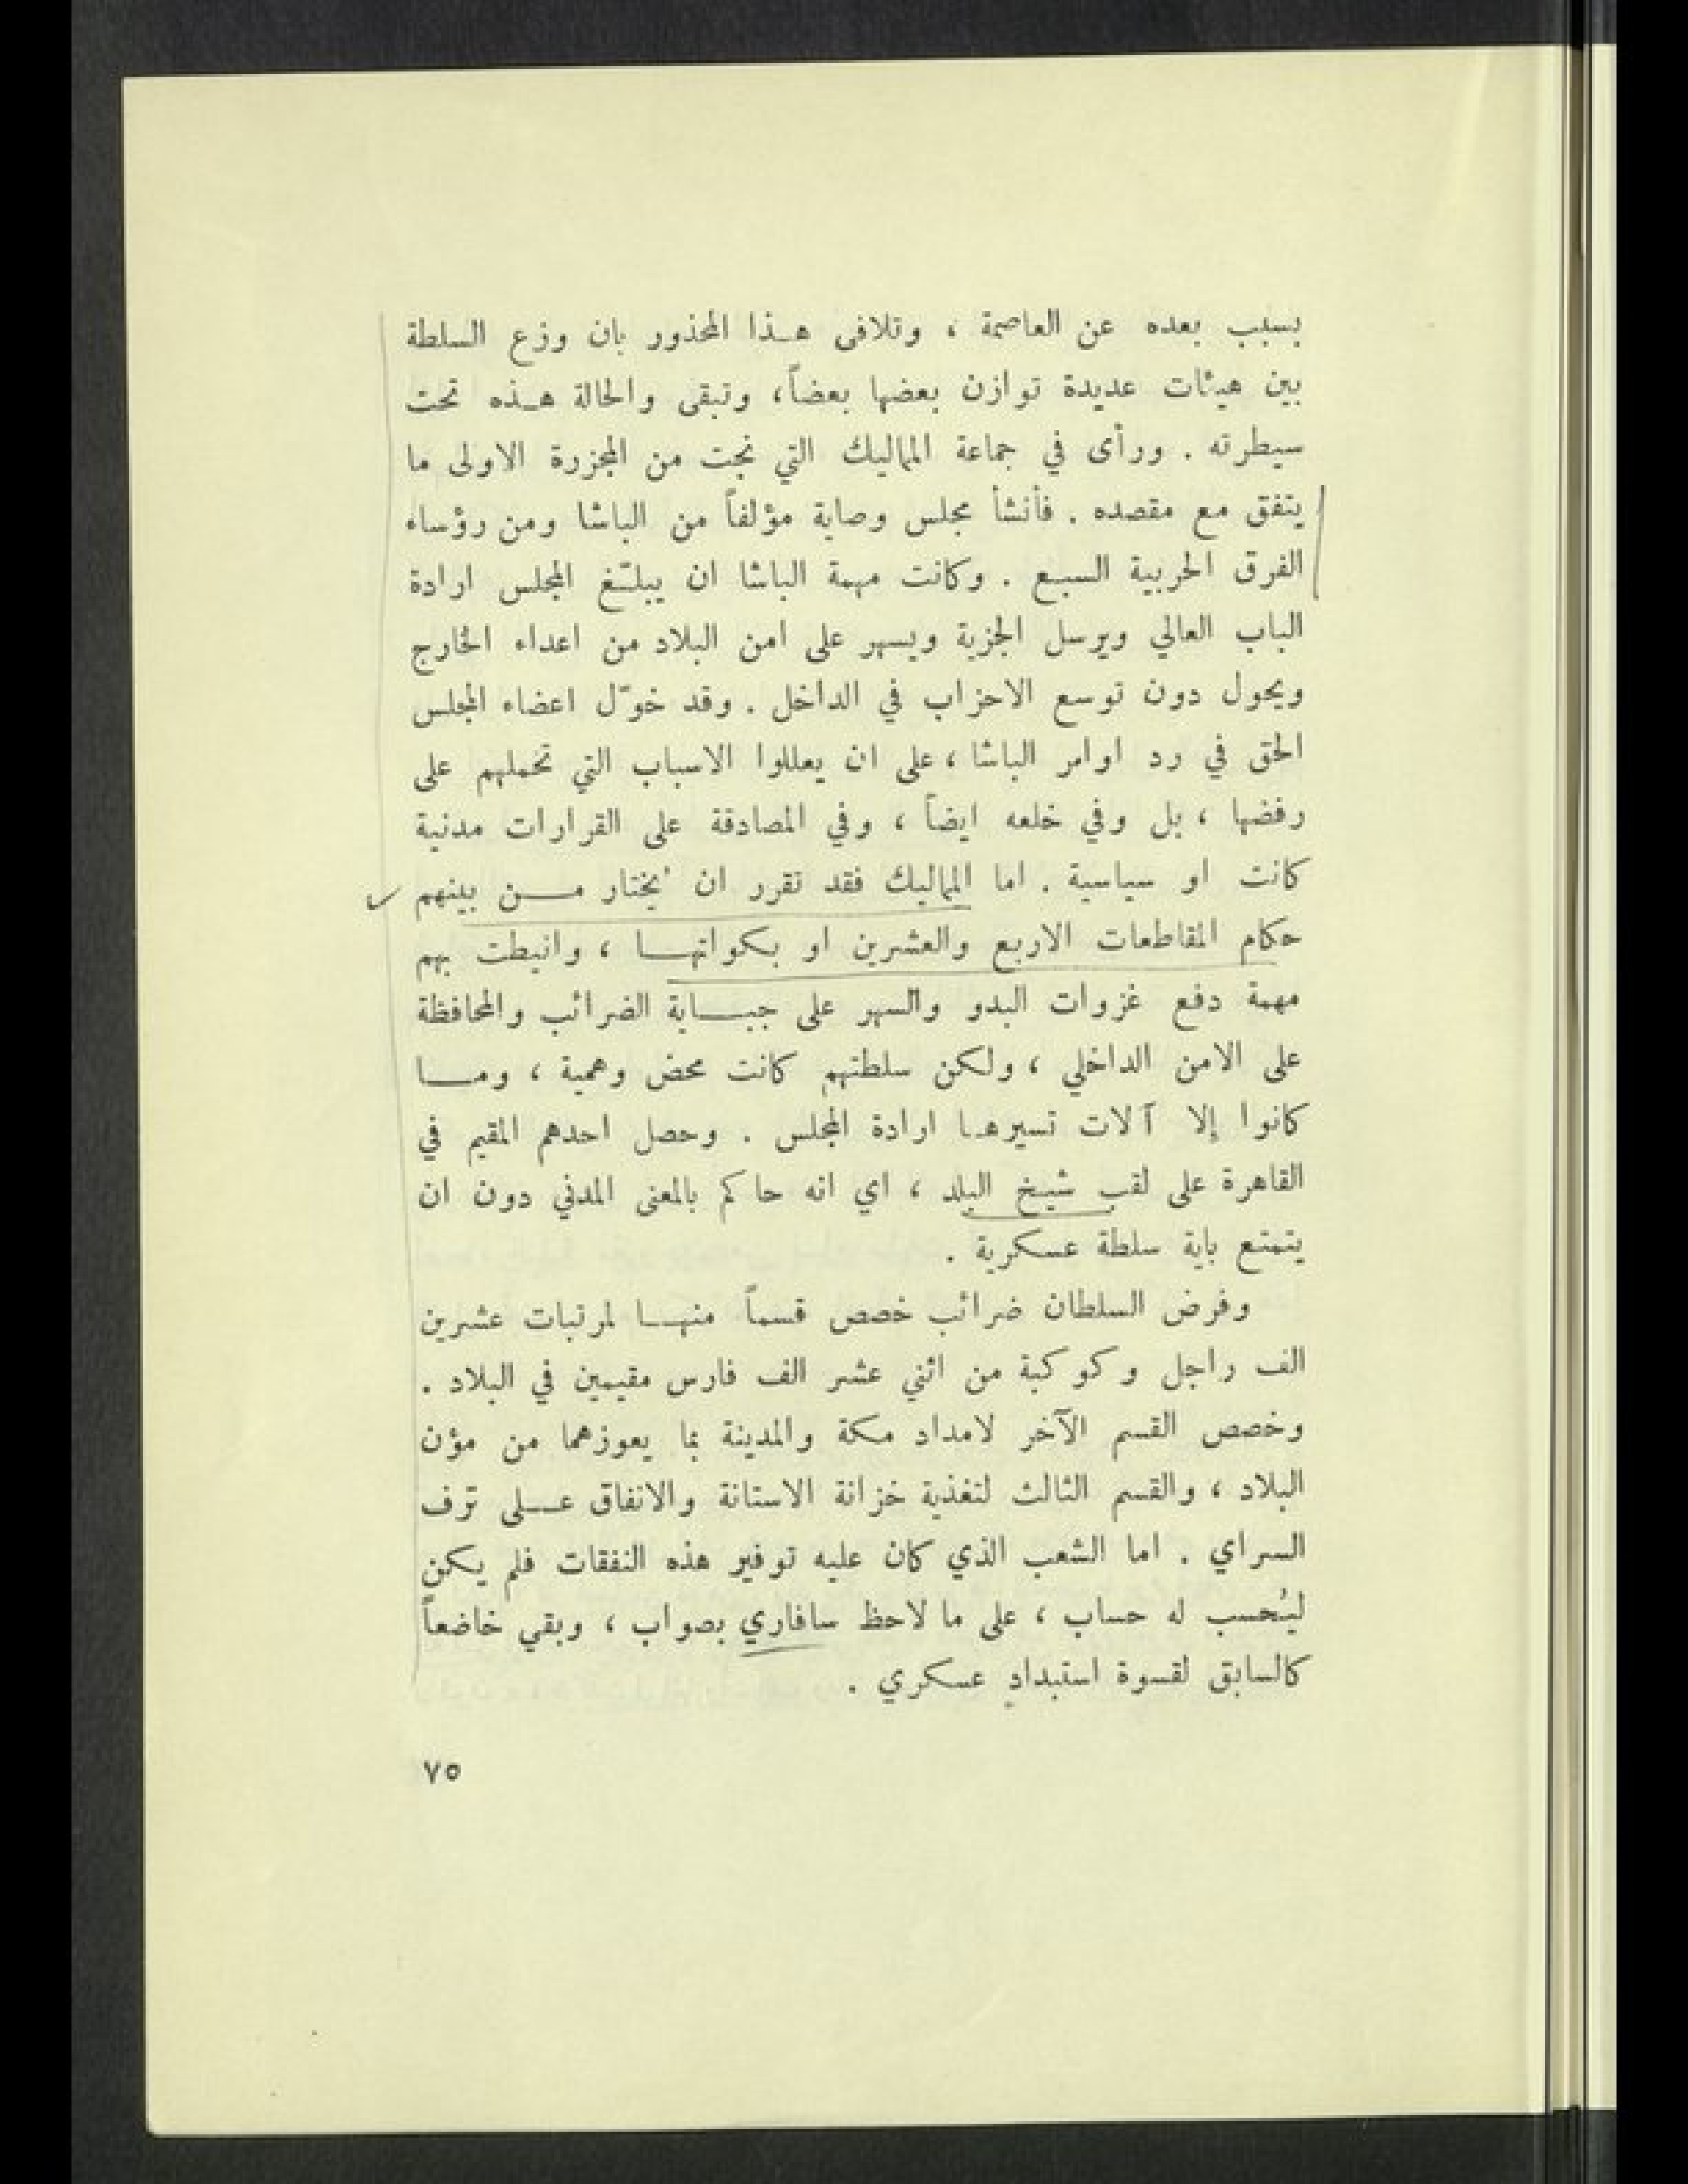 بسبب بعده عن العاصمة ، وتلافى هـذا المحذور بان وزع السلطة
بين هيئات عديدة توازن بعضها بعضاً، وتبقى والحالة هـذه تحت
سيطرته . ورأى في جماعة المماليك التي نجت من المجزرة الاولى ما
يتفق مع مقصده . فأنشأ مجلس وصاية مؤلفاً من الباشا ومن رؤساء
الفرق الحربية السبع . وكانت مهمة الباشا ان يبلّغ المجلس ارادة
الباب العالي ويرسل الجزية ويسهر على امن البلاد من اعداء الخارج
ويحول دون توسع الاحزاب في الداخل . وقد خوّل اعضاء المجلس
الحق في رد اوامر الباشا ، على ان يعللوا الاسباب التي تحملهم على
رفضها ، بل وفي خلعه ايضاً ، وفي المصادقة على القرارات مدنية
كانت او سياسية . اما المماليك فقد تقرر ان يُختار مـــن بينهم
حكام المقاطعات الاربع والعشرين او بكواتهـــا ، وانيطت بهم
مهمة دفع غزوات البدو والسهر على جبـــاية الضرائب والمحافظة
على الامن الداخلي ، ولكن سلطتهم كانت محض وهمية ، ومـــا
كانوا إلا آلات تسيرهـا ارادة المجلس . وحصل احدهم المقيم في
القاهرة على لقب شيخ البلد ، اي انه حاكم بالمعنى المدني دون ان
يتمتع باية سلطة عسكرية .
وفرض السلطان ضرائب خصص قسماً منهـــا لمرتبات عشرين
الف راجل وكوكبة من اثني عشر الف فارس مقيمين في البلاد .
وخصص القسم الآخر لامداد مكة والمدينة بما يعوزهما من مؤن
البلاد ، والقسم الثالث لتغذية خزانة الاستانة والانفاق عـــلى ترف
السراي . اما الشعب الذي كان عليه توفير هذه النفقات فلم يكن
ليُحسب له حساب ، على ما لاحظ سافاري بصواب ، وبقي خاضعاً
كالسابق لقسوة استبدادٍ عسكري .
٧٥